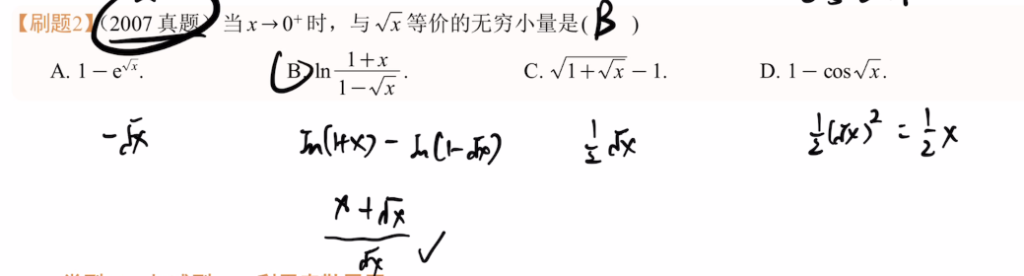 【刷题2】(2007 真题) 当 x→0⁺ 时，与 √x 等价的无穷小量是( B )
A. 1 − e^√x. B. ln (1+x)/(1−√x). C. √(1+√x) − 1. D. 1 − cos√x.
−√x ln(1+x) − ln(1−√x) 1/2 √x 1/2(√x)² = 1/2 x
(x+√x)/√x ✓